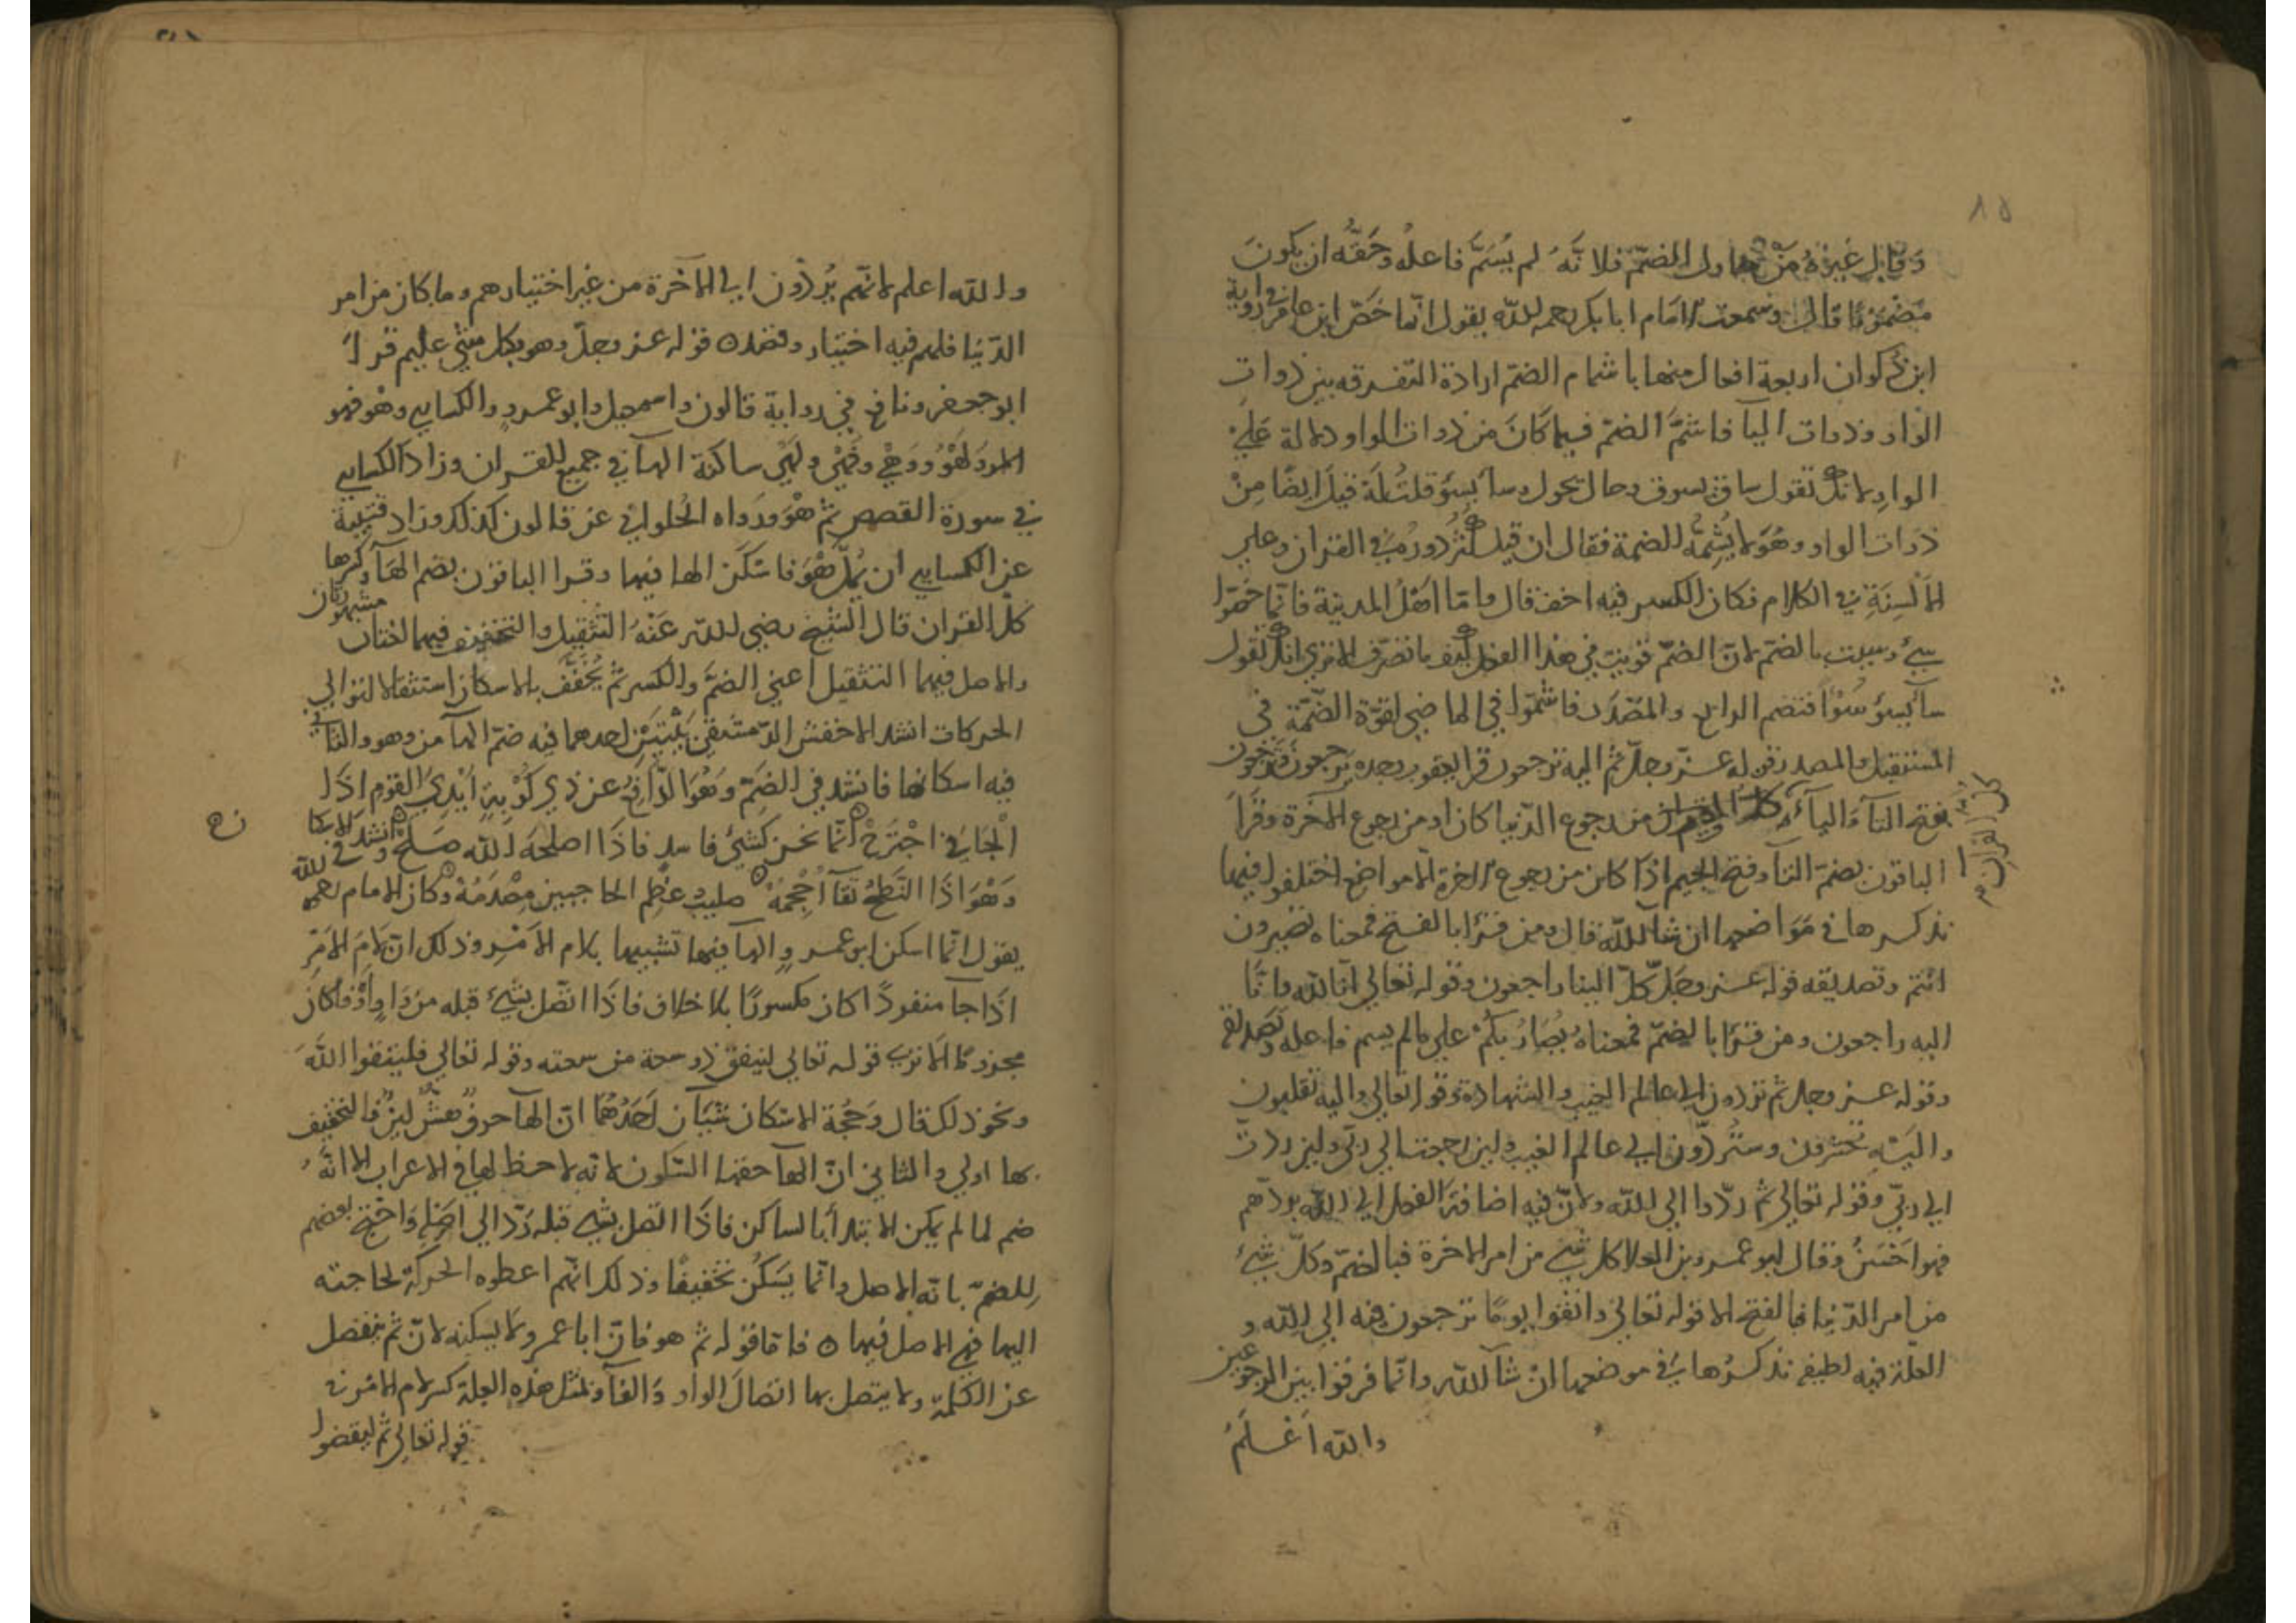 ١٥
وقال غيره من حاول الضمّ فلانّه لم يُسَمَّ فاعله وحقّه ان يكونَ
مضمومًا قال وسمعت الامام ابا بكر رحمه الله يقول انما خصّ ابن عامر في رواية
ابن ذكوان اربعة افعال منها باشمام الضمّ ارادة التفرقه بين ذوات
الواو وذوات اليا فاشمَّ الضمّ فيما كان من ذوات الواو دلالة علي
الواو لانك تقول ساق يسوق وحال يحول وسا يسوُ قلتُ لهُ قيل ايضًا من
ذوات الواو وهُوَ لا يُشِمُّه الضمة فقال ان قيل كثُر دورُهُ في القران وعلي
الالسِنَةِ في الكلام فكان الكسر فيه اخف قال وامّا اهل المدينة فانّما خصّوا
سيءَ وسيئت بالضمّ لانّ الضمّ قويت في هذا الفعل كيف ما تصرّف الا تري انك تقول
سآ يسوُ سُوْءًا فتضم الواو والمصْدَر فاشمّوا في الماضي لقوّة الضّمّة في
المستقبل والمصدر قوله عزّ وجلّ ثم اليه ترجعون قرا يعقوب وحده تَرجعون ويَرجعون
بفتح التآ واليآ من رجوع الدّنيا كان او من رجوع الآخرة وقرأ
كلّ القران
الباقون بضمّ التآ وفتح الجيم اذا كان من رجوع الاخرة الا مواضع اختلفوا فيها
نذكرها في مَوَاضعها ان شآ الله قال ومن قرأ بالفتح فمعناه تصيرون
انتم وتصديقه قوله عزّ وجلّ كلّ الينا راجعون وقوله تعالي انا لله وانّا
اليه راجعون ومن قرأ بالضمّ فمعناه يُصَارُ بكم علي ما لم يسم فاعله وتصديقه
وقوله عز وجل ثم تردون الي عالم الغيب والشهادة وقوله تعالي واليه تقلبون
واليه تحشرون وستُردّون الي عالم الغيب ولين رجعت الي ربّي ولين رددت
الي ربّي وقوله تعالي ثم ردّوا الي الله ولانّ فيه اضافة الفعل الي الله بردّهم
فهو احْسَنُ وقال ابو عمرو بن العلا كل شي من امر الاخرة فبالضمّ وكلّ شيءٍ
من امر الدّنيا فبالفتح الا قوله تعالي واتقوا يومًا ترجعون فيه الي الله و
العلّة فيه لطيفة نذكرها في موضعها ان شآ الله وانّما فرقوا بين الرجوعين
والله اعْلَمُ
والله اعلم لانّهم يُردّون الي الآخرة من غير اختيارهم وما كان من امر
الدّنيا فلهم فيه اختيار وقصد ه قوله عز وجلّ وهو بكل شيءٍ عليم قرأ
ابو جعفر ونافع في رواية قالون واسمعيل وابو عمرو والكسايي وهْو فهْو
لهْوَ وَهْيَ فَهْيَ ولَهْيَ ساكنة الهآ في جميع القران وزاد الكسايي
في سورة القصص ثم هْوَ ورواه الحلواني عن قالون كذلك وزاد قتيبة
عن الكسايي ان يُمِلَّ هْوَ فاسْكَن الها فيها وقرا الباقون بضم الهآ وكسرها
كلّ القران قال الشيخ رضي الله عنهُ التثقيل والتخفيف فيهما لغتان مشهورتان
والاصل فيهما التثقيل اعني الضمَّ والكسر ثم يُخَفَّف بالاسكان استثقالا لتوالي
الحركات انشد الاخفش الدّمشقي بَيْتيْن احدهما فيه ضمّ الهآ من وهو والثاني
فيه اسكانها فانشد في الضمّ وَهُوَ الدّافعُ عن ذي كُرْبةٍ ايْدِيَ القوم اذا
الجاني اجْتَرَحْ ه انّما نحن كشيءٍ فاسدٍ فاذا اصلحَهُ الله صَلَحْ ه وانشد في الاسكان
وَهْوَ اذا النَّطْحُ تَفآ أُجْحُمُهْ ه صليبُ عظمِ الحاجبين مِصْدَمُهْ ه وكان الامام رحمه الله
ن ه
يقول انّما اسكن ابو عمرو الهآ فيها تشبيها بلام الامْر وذلك انّ لامَ الامْر
اذا جآ منفردًا كان مكسورًا بلا خلاف فاذا اتّصل بشيءٍ قبله من وَاوٍ اوْ فآ كان
مجزومًا الا تري قوله تعالي لينفق ذو سعة من سعته وقوله تعالي فليتقوا اللهَ
ونحو ذلك قال وحُجّة الاسْكان شيئان احَدُهُما انّ الهآ حرفٌ هشٌّ ليّنٌ فالتخفيف
بها اولي والثاني انّ الهآ حقها السّكون لانه لا حظ لها في الاعراب الا انّهُ
ضم لما لم يمكن الابتدآ بالساكن فاذا اتصل بشي قبله رَدّ الي اصْله وَاحْتجّ بعضهم
للضمّ بانه الاصل وانّما يَسكُن تخفيفًا وذلك انّهم اعطوه الحركة لحاجته
اليها فهي الاصل فيها ه فامّا قوله ثم هو فانّ ابا عمرو لا يسكنه لانّ ثم ينفصل
عن الكلمة ولا يتصل بها اتصال الواو والفآ ولمثل هذه العلة كسر لام الامْر في
قوله تعالي ثم ليقضوا